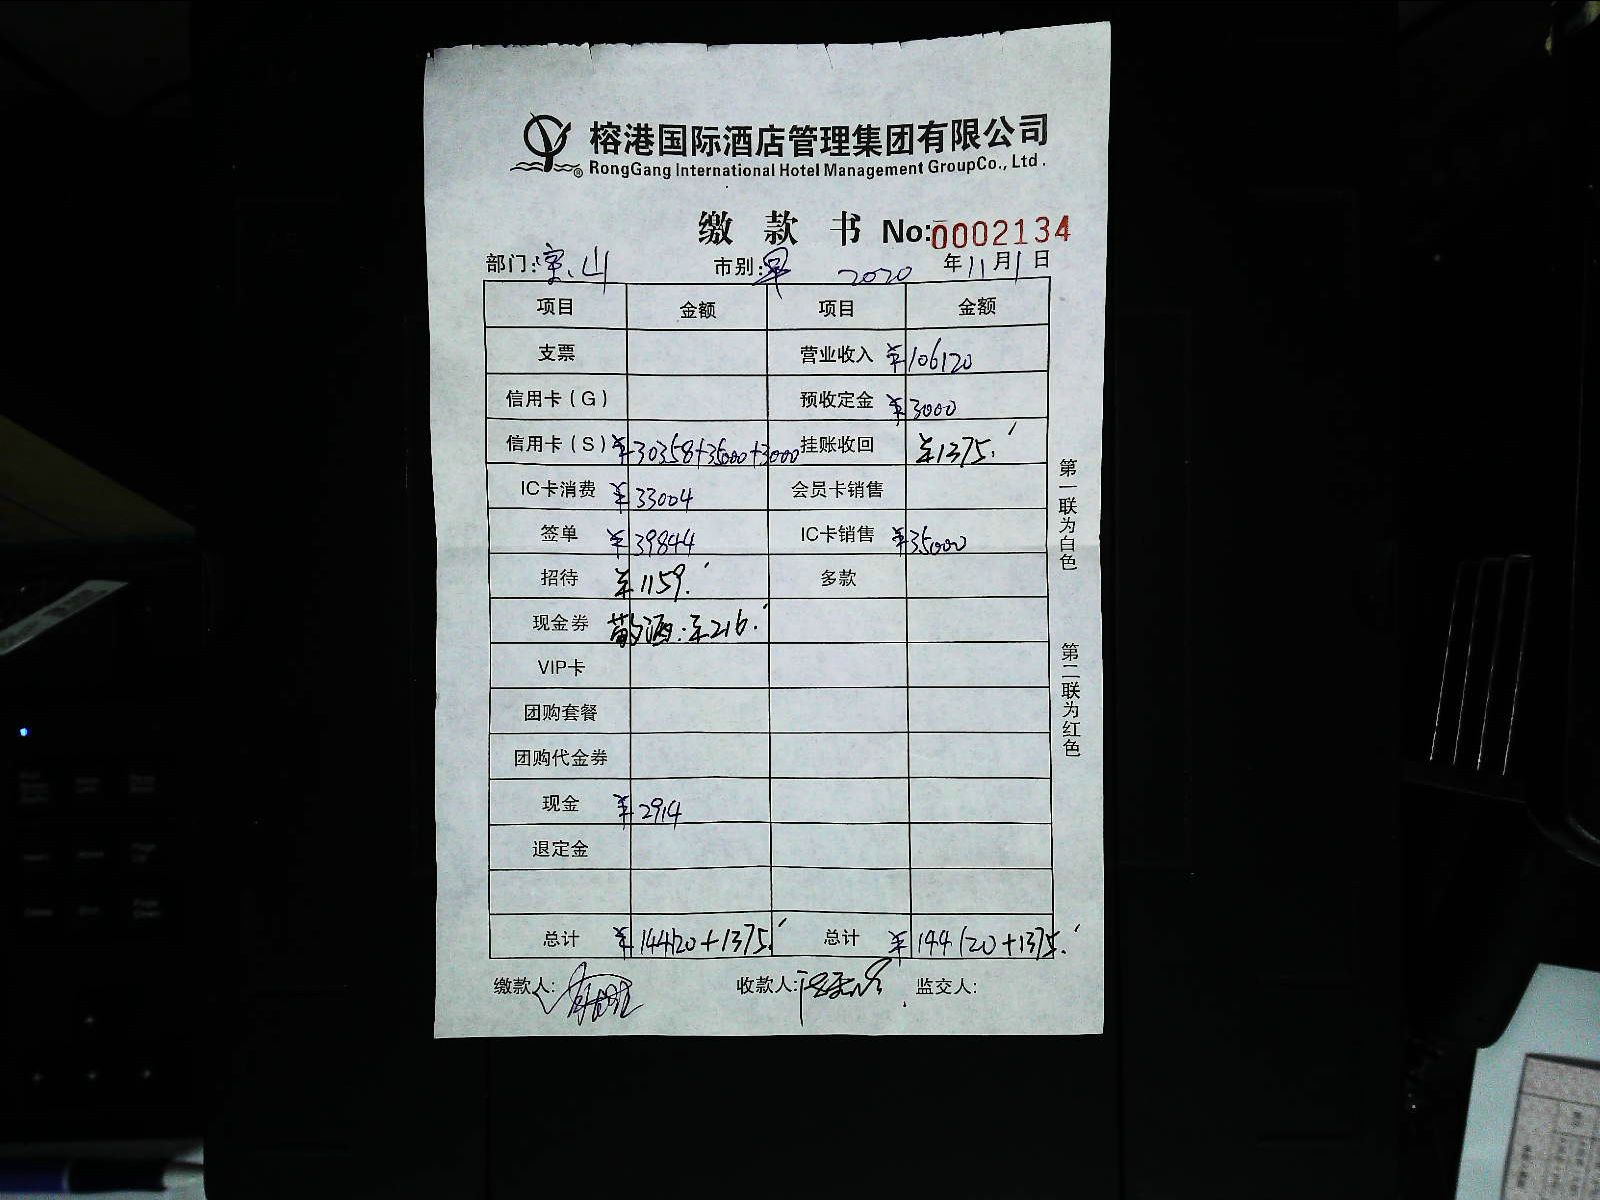 榕港国际酒店管理集团有限公司
RongGang International Hotel Management GroupCo., Ltd.
缴款书 No:0002134
部门: 山 市别:早 2020年11月1日
项目 金额 项目 金额
支票 营业收入 ¥106120
信用卡(G) 预收定金 ¥3000
信用卡(S) ¥30358+35000+3000 挂账收回 ¥1375.
IC卡消费 ¥33004 会员卡销售
签单 ¥39844 IC卡销售 ¥35000
招待 ¥1159. 多款
现金券 酒:¥216.
VIP卡
团购套餐
团购代金券
现金 ¥2914
退定金
总计 ¥144120+1375. 总计 ¥144120+1375.
缴款人: 收款人: 监交人:
第一联为白色
第二联为红色